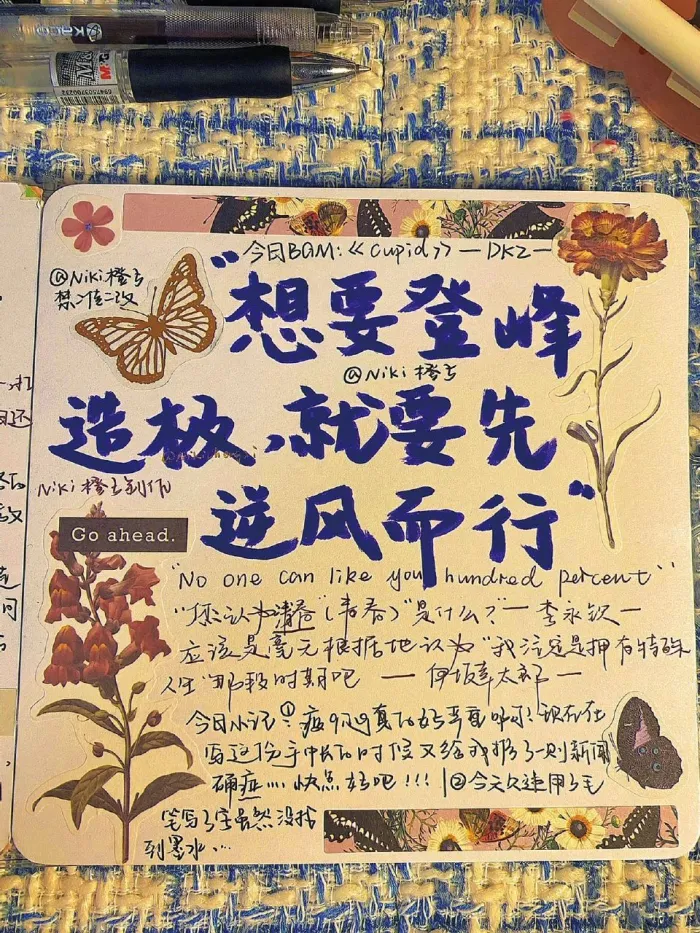 今日BGM:《Cupid》— DKZ —
@Niki橙子
禁止二改
"想要登峰
@Niki橙子
造极,就要先
Niki橙子制作
逆风而行"
Go ahead.
"No one can like you hundred percent"
"您认为清春(青春)"是什么?"— 李永钦 —
应该是毫无根据地认为"我注定是拥有特殊
人生"那段时期吧 — 伊坂幸太郎 —
今日小记:① 疫情真的好严重 现在在
写这份手帐的时候又给我报了一则新闻
确症... 快点去吧!!! |②今天久违用了毛
笔写了字虽然没找
到墨水...